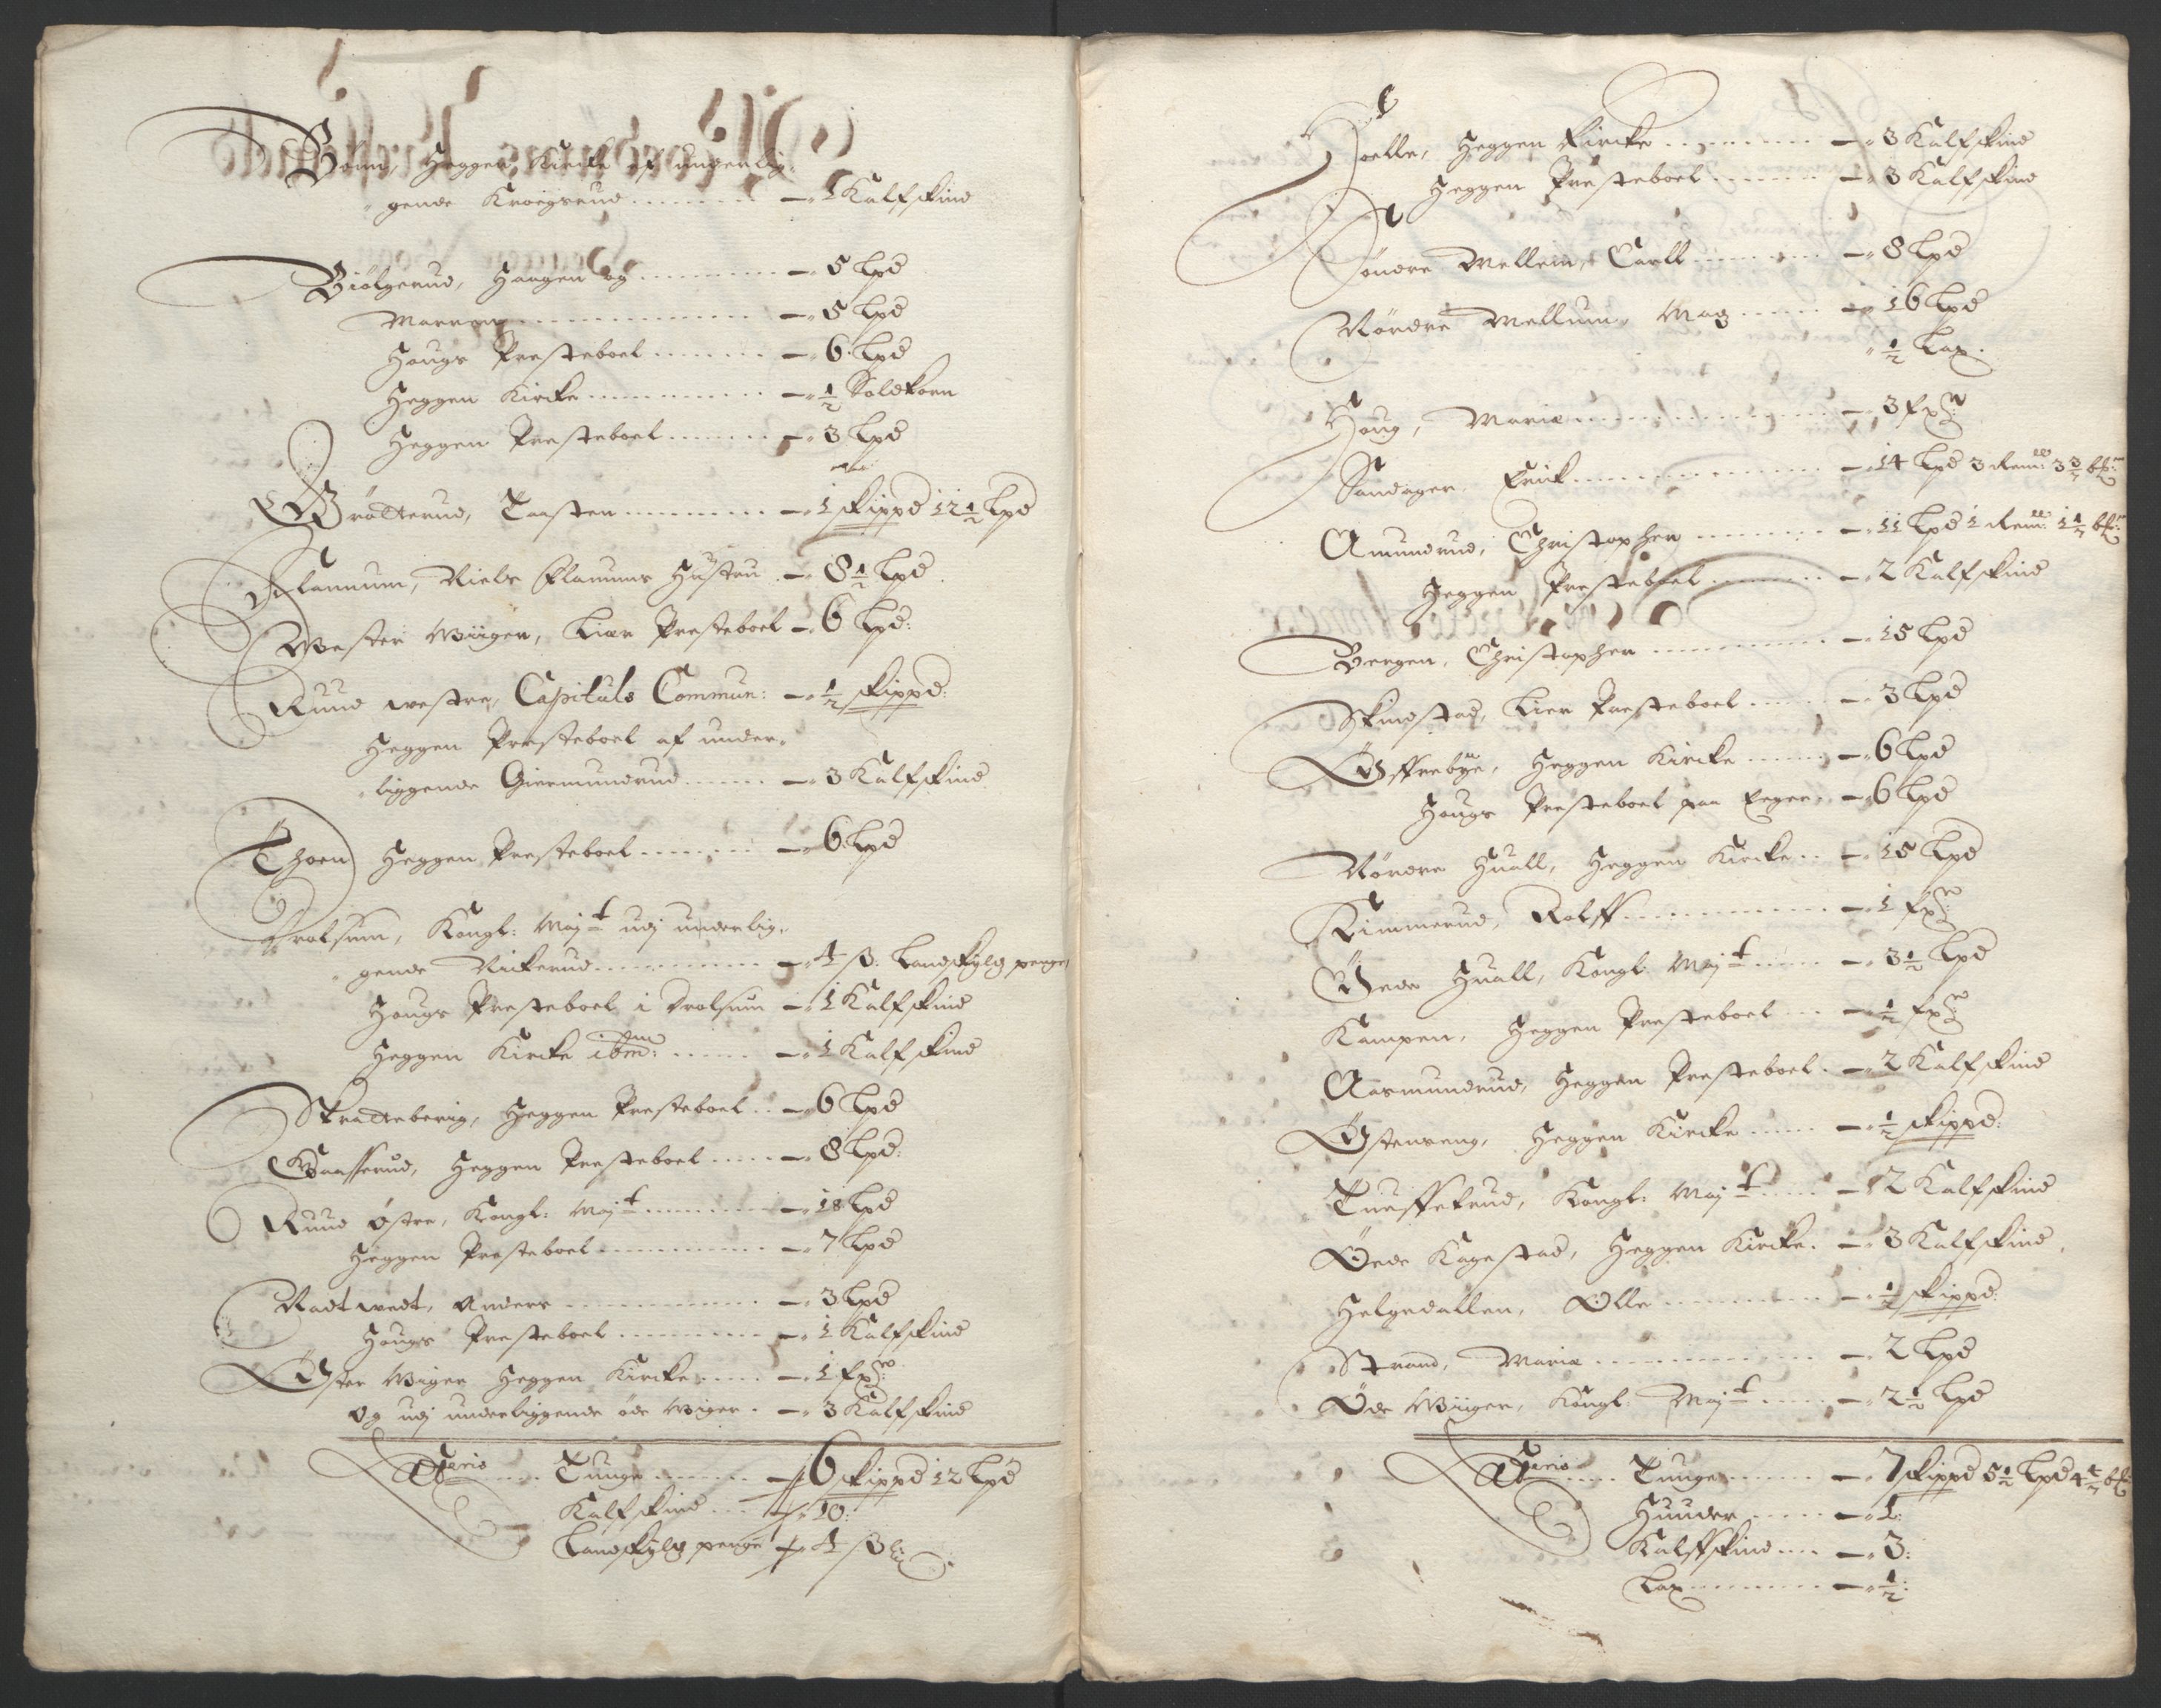 Bonn, Heggen Kircke af underlig,
gende Kroegsrud ........ — 1 Kalfskind
Giölgerud, Haagen og ........ — 5 Lpd
Marren ........ — 5 Lpd
Hougs Presteboel ........ — 6 Lpd
Heggen Kircke ........ — ½ Soldkorn
Heggen Presteboel ........ — 3 Lpd
Grötterud, Torsten ........ — 1 Skippd 12½ Lpd
Flannum, Niels Flanums Hustru — 8½ Lpd
Wester Wiiger, Lier Presteboel — 6 Lpd:
Ruud westre, Capituls Commun: — ½ Skippd:
Heggen Presteboel af under,
liggende Giermundrud ...... — 3 Kalfskind
Thoen Heggen Presteboel ........ — 6 Lpd
Drolsum, Kongl: Mayt udj underlig,
gende Nickerud ........ — 4 ß. Landskyld penge
Hougs Presteboel i Drolsum — 1 Kalfskind
Heggen Kircke ibm: ...... — 1 Kalfskind
Skratteberig, Heggen Presteboel .. — 6 Lpd
Gaasserud, Heggen Presteboel ..... — 8 Lpd:
Ruud östre, Kongl: Mayt ........ — 18 Lpd
Heggen Presteboel ........ — 7 Lpd
Nadtwedt, Anders ........ — 3 Lpd
Hougs Presteboel ........ — 1 Kalfskind
Öster Wiger Heggen Kircke ..... — 1 fxr:
Og udj underliggende öde Wiger . — 3 Kalfskind
Lateris .... Tunge ...... — 6 Skippd 12 Lpd
Kalfskind ... — 10:
Landskyld penge — 4 ß
Hoelle, Heggen Kircke ........ — 3 Kalfskind
Heggen Presteboel ........ — 3 Kalfskind
Söndre Mellem, Carll ........ — 8 Lpd
Nördre Mellum, Mag ..... — 16 Lpd
½ Lax.
Houg, Marie ........ — 3 fxr
Sandager Erick ........ — 14 Lpd 3 Rem: 3¾ bs:
Amundrud, Christopher ........ — 11 Lpd 1 Rem: 1½ bs:
Heggen Presteboel ........ — 2 Kalfskind
Bergen, Christopher ........ — 15 Lpd
Skindstad, Lier Presteboel ..... — 3 Lpd
Öffrebye, Heggen Kircke ...... — 6 Lpd
Hougs Presteboel paa Eger. — 6 Lpd
Nördre Huall, Heggen Kircke .. — 15 Lpd
Kimmerud, Rolff ........ — 1 fxr:
Öede Huall, Kongl Mayt ..... — 3½ Lpd
Kampen, Heggen Presteboel ... — ½ fxr:
Aasmundrud, Heggen Presteboel . — 2 Kalfskind
Östenseng, Heggen Kircke ...... — ½ Skippd:
Tueffterud, Kongl: Mayt ..... — 2 Kalfskind
Öede Kagestad, Heggen Kircke. — 3 Kalfskind
Helgedallen, Olle ........ — ½ Skippd:
Strand, Marie ........ — 2 Lpd
Öde Wiiger, Kongl. Mayt ...... — 2½ Lpd
Lateris .... Tunge ...... — 7 Skippd 5½ Lpd
Huuder ...... — 1:
Kalffskind .... — 3:
Lax ........ — ½: